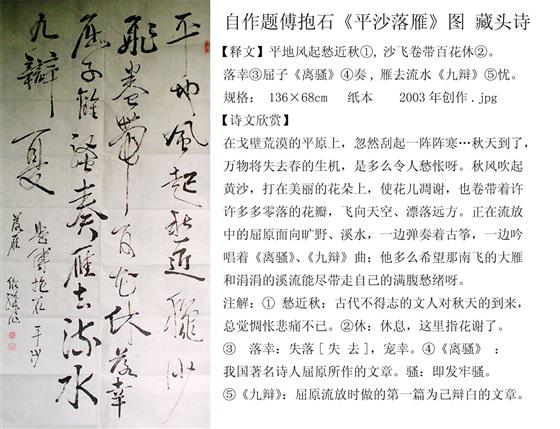 平地風起愁近秋沙
飛卷帶百花休落幸
屈子離騷奏雁去流水
九辯憂
題傅抱石平沙
落雁
自作题傅抱石《平沙落雁》图 藏头诗
【释文】平地风起愁近秋①，沙飞卷带百花休②。
落幸③屈子《离骚》④奏，雁去流水《九辩》⑤忧。
规格： 136×68cm 纸本 2003年创作.jpg
【诗文欣赏】
在戈壁荒漠的平原上，忽然刮起一阵阵寒…秋天到了，
万物将失去春的生机，是多么令人愁怅呀。秋风吹起
黄沙，打在美丽的花朵上，使花儿凋谢，也卷带着许
许多多零落的花瓣，飞向天空、漂落远方。正在流放
中的屈原面向旷野、溪水，一边弹奏着古筝，一边吟
唱着《离骚》、《九辩》曲；他多么希望那南飞的大雁
和涓涓的溪流能尽带走自己的满腹愁绪呀。
注解：① 愁近秋：古代不得志的文人对秋天的到来，
总觉惆怅悲痛不已。②休：休息，这里指花谢了。
③ 落幸：失落[失 去]，宠幸。④《离骚》：
我国著名诗人屈原所作的文章。骚：即发牢骚。
⑤《九辩》：屈原流放时做的第一篇为己辩白的文章。